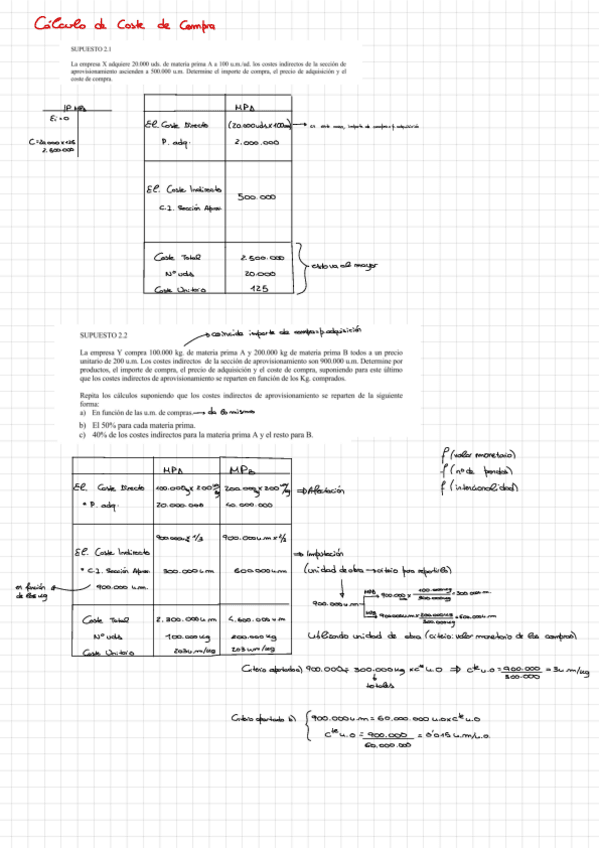 Cálculo de Coste de Compra
SUPUESTO 2.1
La empresa X adquiere 20.000 uds. de materia prima A a 100 u.m./ud. los costes indirectos de la sección de
aprovisionamiento ascienden a 500.000 u.m. Determine el importe de compra, el precio de adquisición y el
coste de compra.
Ei=0
C=20.000x125
2.500.000
MPA
El. Coste Directo (20.000uds x 100um)
P. adq. 2.000.000
El. Coste Indirecto 500.000
C.I. Sección Aprov.
Coste Total 2.500.000
Nº uds 20.000
Coste Unitario 125
esto va al mayor
SUPUESTO 2.2
coincide importe de compra = p. adquisición
La empresa Y compra 100.000 kg. de materia prima A y 200.000 kg de materia prima B todos a un precio
unitario de 200 u.m. Los costes indirectos de la sección de aprovisionamiento son 900.000 u.m. Determine por
productos, el importe de compra, el precio de adquisición y el coste de compra, suponiendo para este último
que los costes indirectos de aprovisionamiento se reparten en función de los Kg. comprados.
Repita los cálculos suponiendo que los costes indirectos de aprovisionamiento se reparten de la siguiente
forma:
a) En función de las u.m. de compras. → da lo mismo
b) El 50% para cada materia prima.
c) 40% de los costes indirectos para la materia prima A y el resto para B.
f (valor monetario)
f (nº de
f (intencionalidad)
MPA MPB
El. Coste Directo 100.000kg x 200 um/kg 200.000kg x 200 um/kg ⇒ Afectación
• P. adq. 20.000.000 40.000.000
900.000 x 1/3 900.000 u.m x 2/3
El. Coste Indirecto ⇒ Imputación
• C.I. Sección Aprov. 300.000 u.m 600.000 u.m (unidad de obra → criterio para repartirlo)
en función de los kg ← 900.000 u.m.
900.000 u.m
MPA 900.000 x 100.000kg/300.000kg = 300.000 um
MPB 900.000um x 200.000kg/300.000kg = 600.000 um
Coste Total 2.300.000 u.m 4.600.000 u.m
Nº uds 100.000 kg 200.000 kg
Coste Unitario 203 u.m/kg 203 um/kg
Utilizando unidad de obra (criterio: valor monetario de las compras)
300.000 kg x cte u.o ⇒ cte u.o = 900.000/300.000 = 3 u.m/kg
totales
Criterio apartado b) 900.000 u.m = 60.000.000 u.o x cte u.o
cte u.o = 900.000/60.000.000 = 0'015 u.m/u.o.